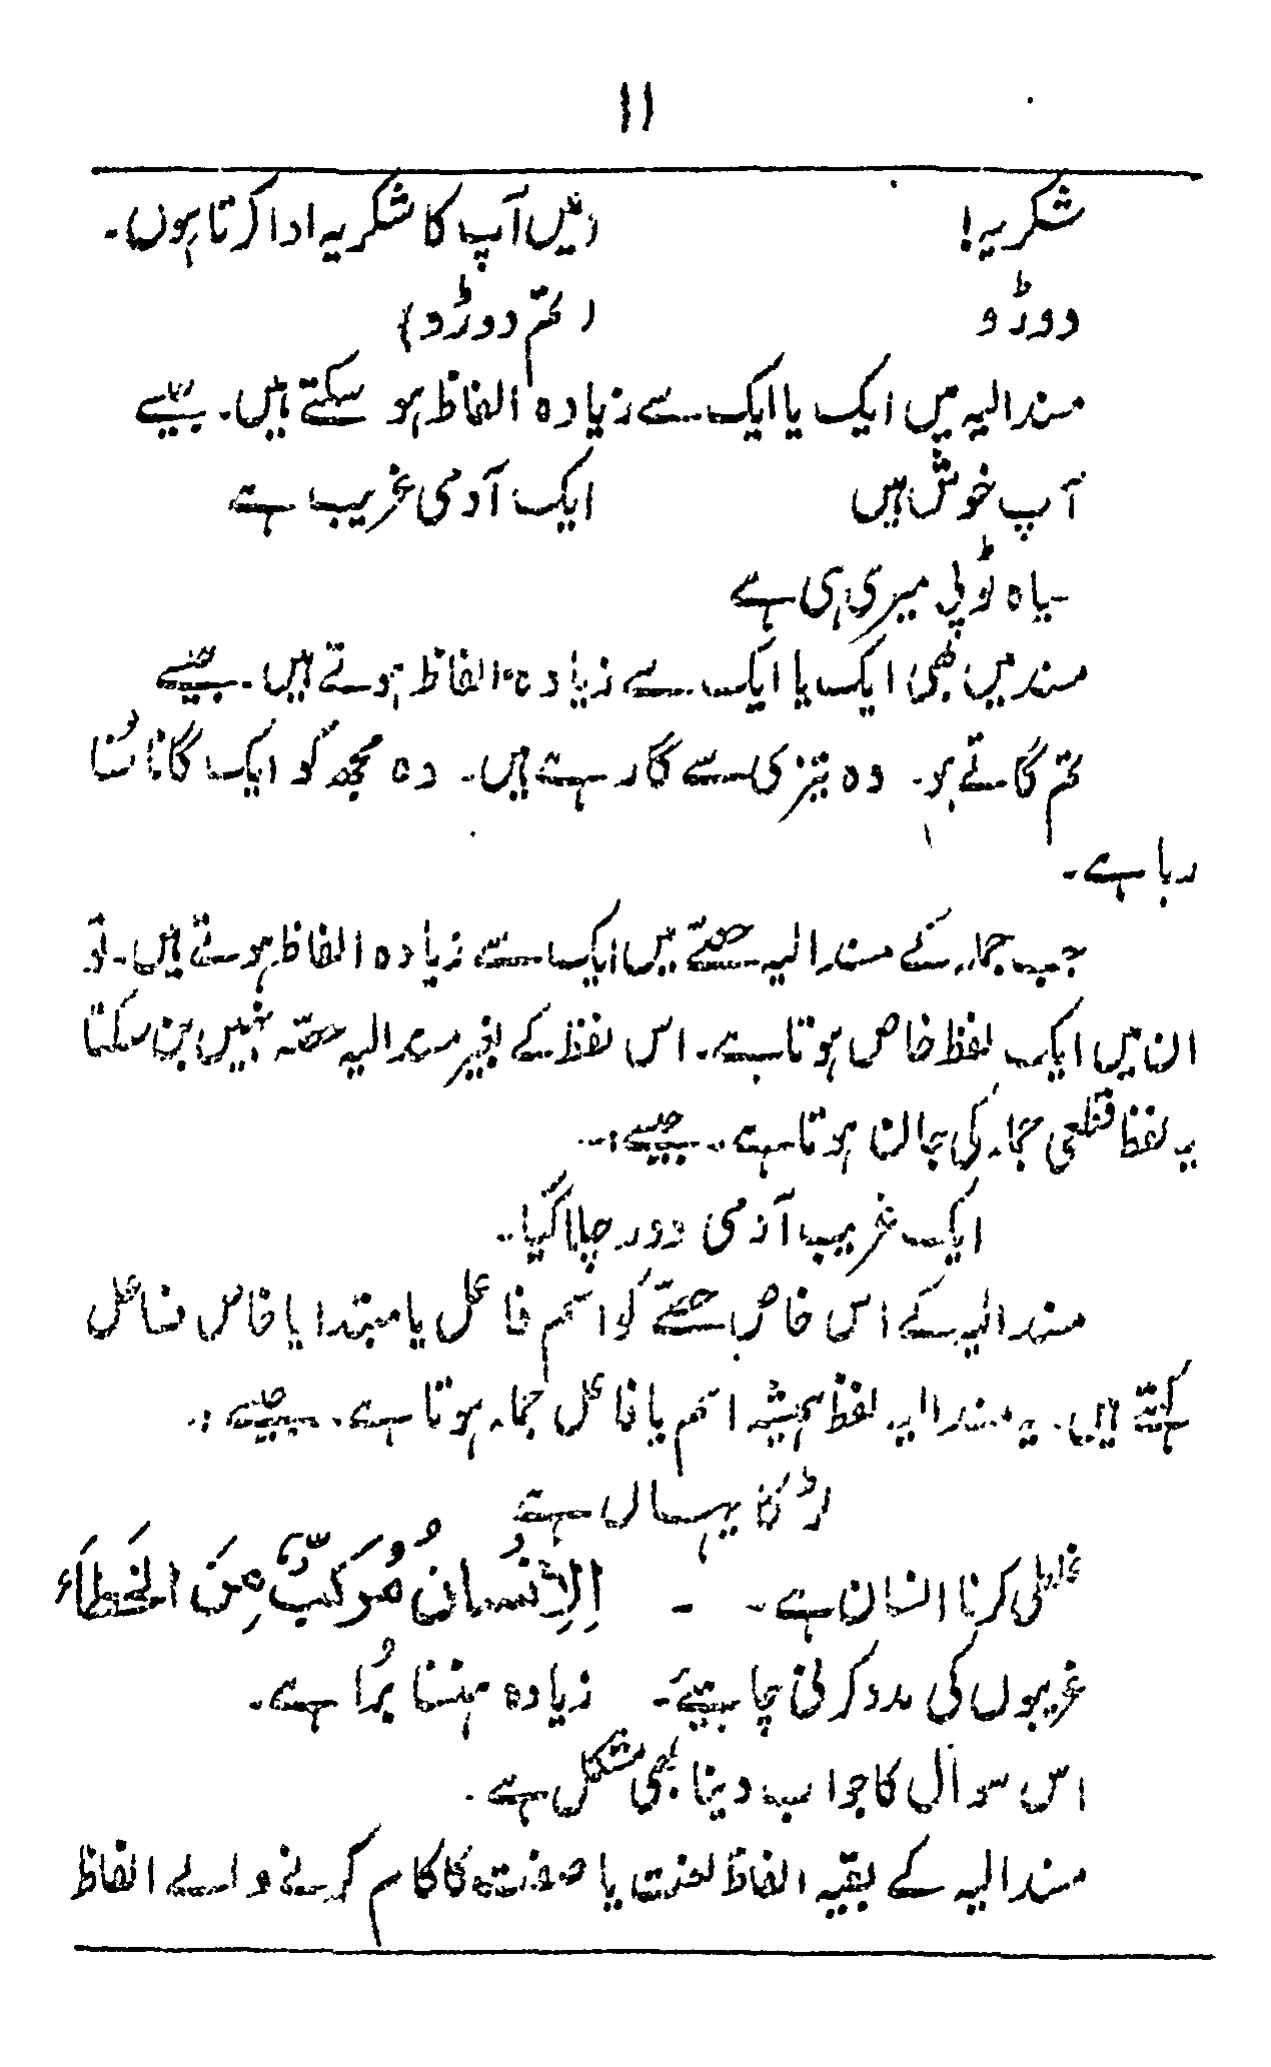 ۱۱
شکریہ! (میں آپ کا شکریہ ادا کرتا ہوں۔
دوڑو (تم دوڑو)
مسندالیہ میں ایک یا ایک سے زیادہ الفاظ ہو سکتے ہیں۔ جیسے
آپ خوش ہیں ایک آدمی غریب ہے
سیاہ ٹوپی میری ہی ہے
مسند میں بھی ایک یا ایک سے زیادہ الفاظ ہوتے ہیں۔ جیسے
تم گاتے ہو۔ وہ تیزی سے گا رہے ہیں۔ وہ مجھ کو ایک گانا سُنا
رہا ہے۔
جب جملہ کے مسندالیہ حصّے میں ایک سے زیادہ الفاظ ہوتے ہیں۔ تو
ان میں ایک لفظ خاص ہوتا ہے۔ اس لفظ کے بغیر مسندالیہ حصّہ نہیں بن سکتا
یہ لفظ قطعی جملہ کی جان ہوتا ہے۔ جیسے:۔
ایک غریب آدمی دور چلا گیا۔
مسندالیہ کے اس خاص حصّے کو اسم فاعل یا مبتدا یا خاص فاعل
کہتے ہیں۔ یہ مسندالیہ لفظ ہمیشہ اسم یا فاعل جملہ ہوتا ہے۔ جیسے:۔
لڑکا یہاں ہے
غلطی کرنا انسان ہے۔ ۔ اِلِاُنْسانُ مُرَکَّبٌ مِنَ الخَطَاَء
غریبوں کی مدد کرنی چاہیئے۔ زیادہ ہنسنا بُرا ہے۔
اس سوال کا جواب دینا بھی مشکل ہے۔
مسندالیہ کے بقیہ الفاظ نعت یا صفت کا کام کرنے والے الفاظ